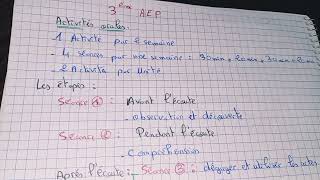 3ème AEP
Activités orales:
1 Activité par 2 semaine
- 4 séances par une semaine : 30min + 30min + 30min +
- 2 Activités par Unité
Les étapes :
Séance ① : Avant l'écoute
- observation et découverte
Séance ② : Pendant l'écoute
- Compréhension
Après l'écoute : - Séance ③ : dégager et utiliser les actes